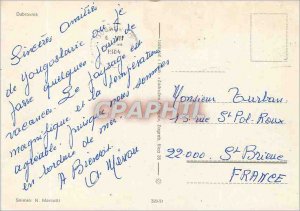 Dubrovnik
Sincères Amitiés
de Yougoslavie où je
passe quelques jours de
vacances. Le paysage est
magnifique et la température
agréable puisque nous sommes
en bordure de mer.
A Bientôt
Snimio: N.
Monsieur Turban
15 rue St Pol-Roux
22.000 St Brieuc
FRANCE